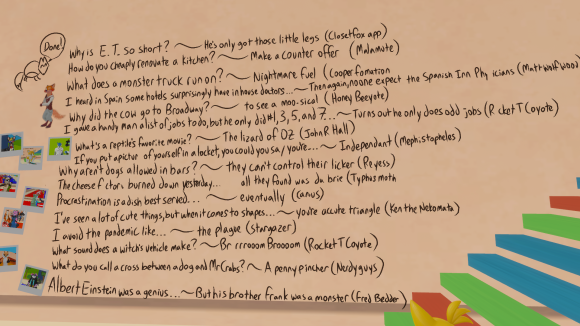 Done!
Why is E.T. so short? ~ He's only got those little legs (Closetfox app)
How do you cheaply renovate a kitchen? ~ Make a counter offer (Malamute)
What does a monster truck run on? ~ Nightmare fuel (Cooper Fomation
I heard in Spain some hotels surprisingly have in house doctors... ~ Then again, no one expect the Spanish Inn Phy icians (Matt Wolfwood)
Why did the cow go to Broadway? ~ to see a moo-sical (Honey Beeyote)
I gave a handy man a list of jobs to do, but he only did #1, 3, 5, and 7... ~ Turns out he only does odd jobs (R cket T Coyote)
What's a reptile's favorite movie? ~ The lizard of OZ (John R Hall)
If you put a picture of yourself in a locket, you could you say you're... ~ Independant (Mephistopheles)
Why aren't dogs allowed in bars? ~ they can't control their licker (Reyess)
The cheese f ctory burned down yesterday... all they found was da brie (Typhus moth
Procrastination is a dish best served... ~ eventually (canus)
I've seen a lot of cute things, but when it comes to shapes... ~ you're accute triangle (Ken the Nekomata)
I avoid the pandemic like... ~ the plague (Stargazer)
What sound does a witch's vehicle make? ~ Br rrrooom Broooom (Rocket T Coyote)
What do you call a cross between a dog and Mr Crabs? ~ A penny pincher (Nerdyguys)
Albert Einstein was a genius... ~ But his brother Frank was a monster (Fred Bedder)